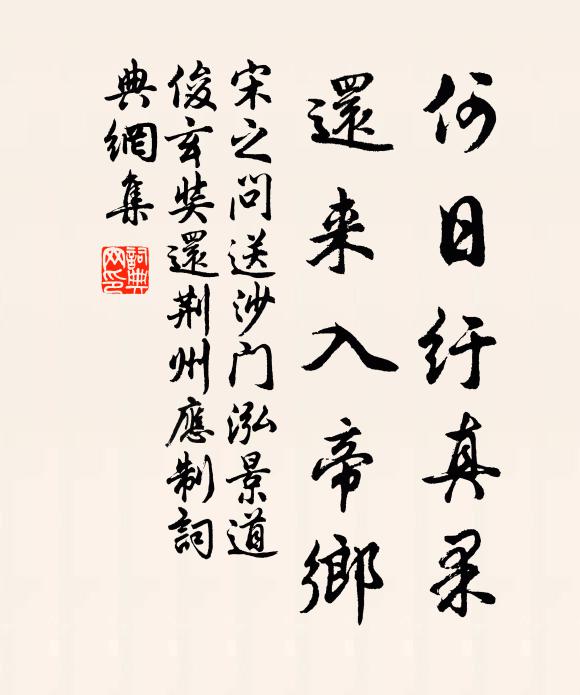 何日紆真果
還来入帝鄉
宋之問送沙门泓景道
俊玄奘還荆州應制詞
典網集
詞典
网印